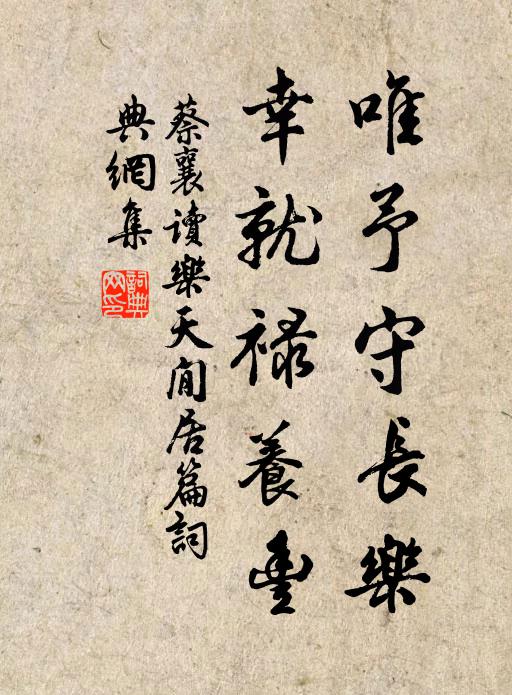 唯予守長樂
幸就禄養豊
蔡襄讀樂天閒居篇詞
典網集
詞典网印